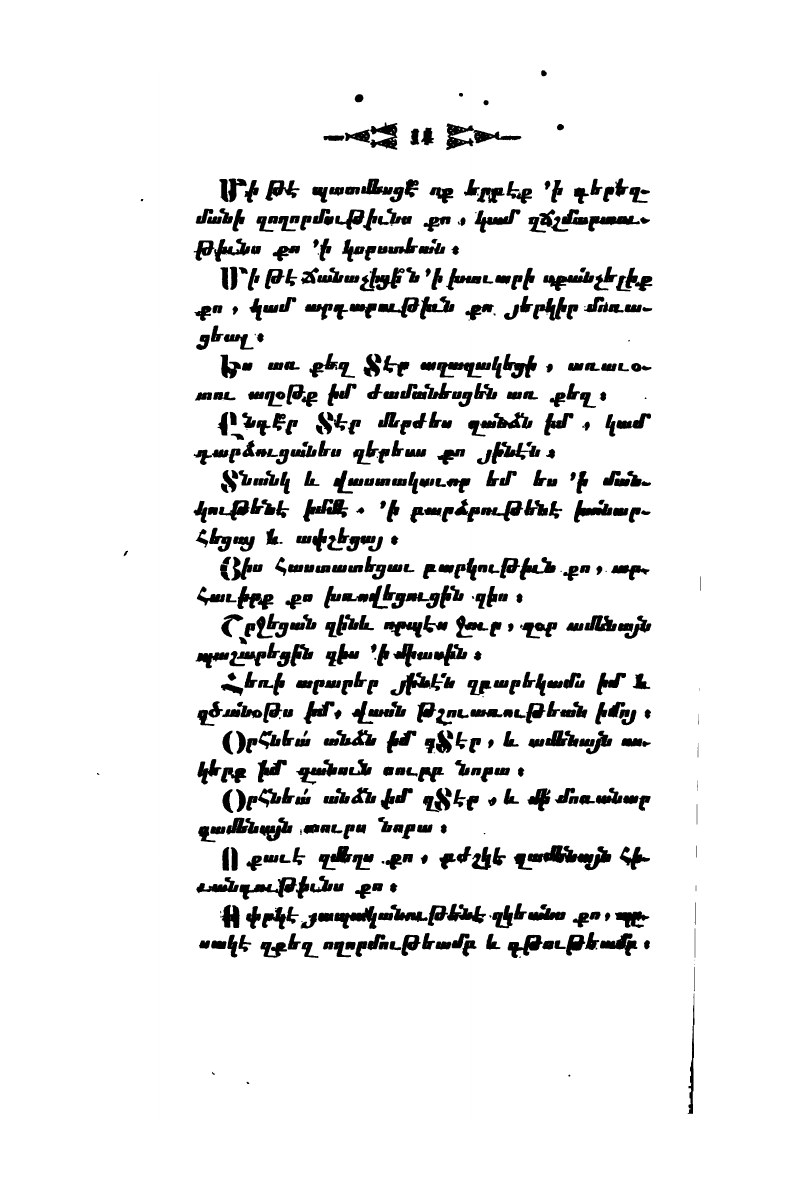 14
Մի թէ պատմեսցէ ոք երբէք ՚ի գերեզ-
մանի զողորմութիւնս քո, կամ զճշմարտու-
թիւնս քո ՚ի կորստեան։
Մի թէ ճանաչիցին ՚ի խաւարի սքանչելիք
քո, կամ արդարութիւն քո յերկիր մոռա-
ցեալ։
Ես առ քեզ Տէր աղաղակեցի, առաւօ-
տու աղօթք իմ ժամանեսցեն առ քեզ։
Ընդէր Տէր մերժես զանձն իմ, կամ
դարձուցանես զերեսս քո յինէն։
Տնանկ և վաստակաւոր եմ ես ՚ի ման-
կութենէ իմմէ, ՚ի բարձրութենէ խոնար-
հեցայ և ափշեցայ։
Յիս հաստատեցաւ բարկութիւն քո, ար-
հաւիրք քո խռովեցուցին զիս։
Շրջեցան զինև որպէս ջուր, զօր ամենայն
պաշարեցին զիս ՚ի միասին։
Հեռի արարեր յինէն զբարեկամս իմ և
զծանօթս իմ, վասն թշուառութեան իմոյ։
Օրհնեա անձն իմ զՏէր, և ամենայն ոս-
կերք իմ զանուն սուրբ նորա։
Օրհնեա անձն իմ զՏէր, և մի մոռանար
զամենայն տուրս նորա։
Ո քաւէ զմեղս քո, բժշկէ զամենայն հի-
ւանդութիւնս քո։
Ո փրկէ յապականութենէ զկեանս քո, պը-
սակէ զքեզ ողորմութեամբ և գթութեամբ։